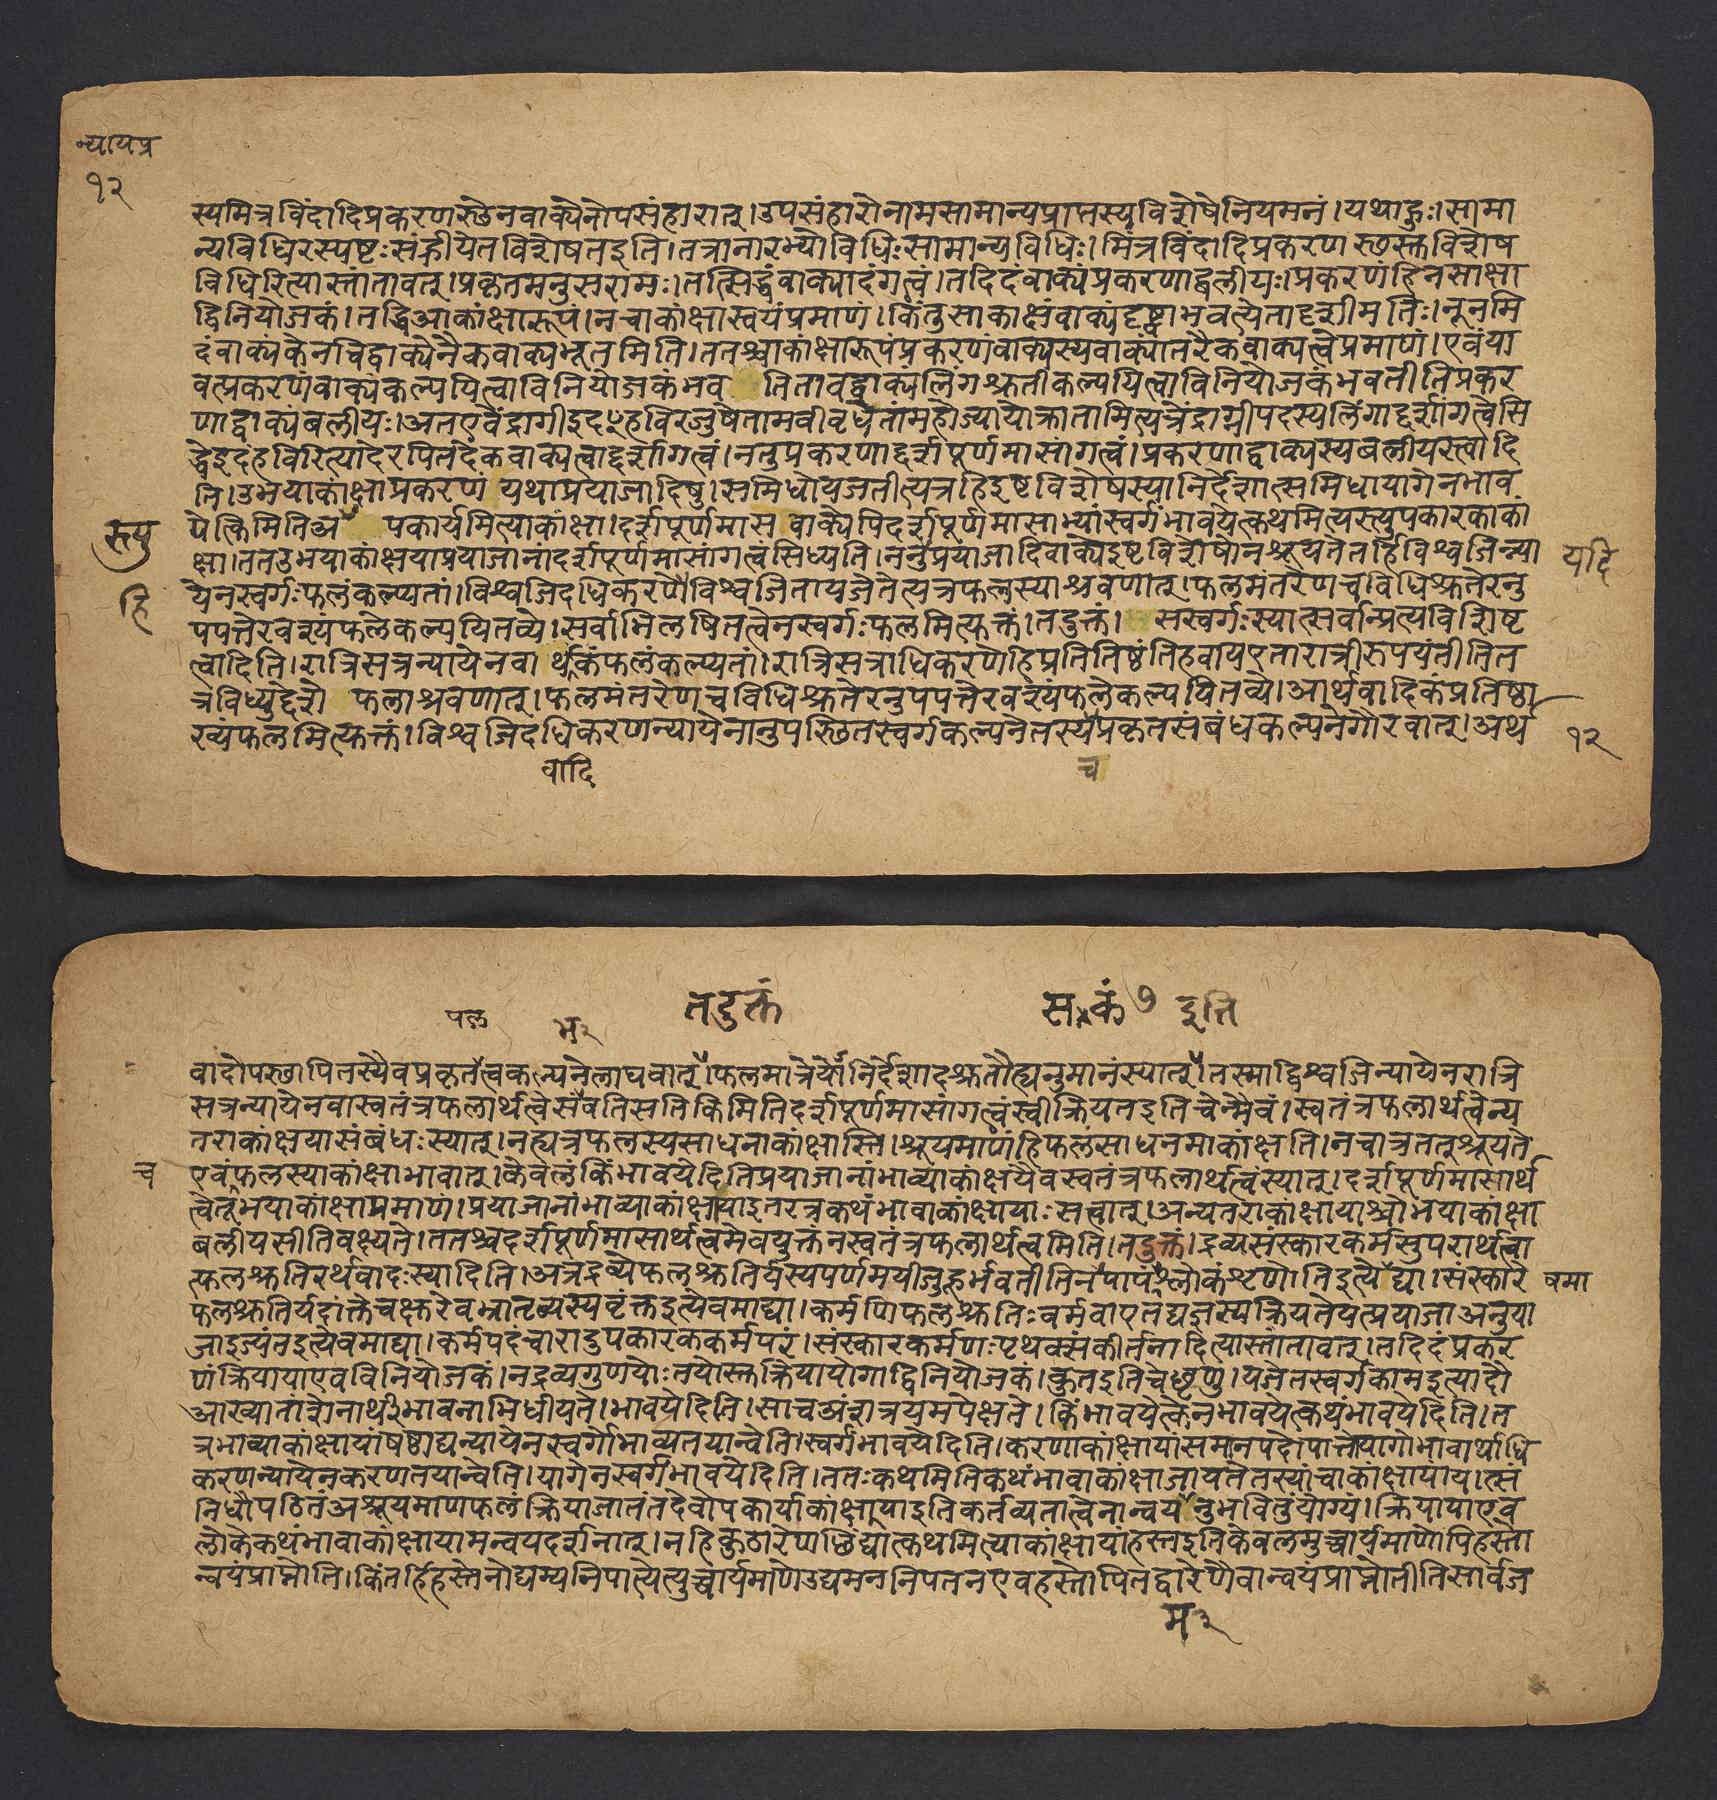 न्यायप्र
१२
स्यमित्रविंदादिप्रकरणस्छेनवाक्येनोपसंहारात्।उपसंहारोनामसामान्यप्राप्तस्यविशेषेनियमनं।यथाहुः।सामा
न्यविधिरस्पष्टःसंह्रीयेतविशेषतइति।तत्रानारभ्योविधिःसामान्यविधिः।मित्रविंदादिप्रकरणस्छस्तुविशेष
विधिरित्यास्तांतावत्।प्रकृतमनुसरामः।तत्सिद्धंवाक्यादंगत्वं।तदिदंवाक्यंप्रकरणाद्बलीयः।प्रकरणंहिनसाक्षा
द्विनियोजकं।तद्धिआकांक्षारूपं।नचाकांक्षास्वयंप्रमाणं।किंतुसाकांक्षंवाक्यंदृष्ट्वाभवत्येतादृशीमतिः।नूनमि
दंवाक्यंकेनचिद्वाक्येनैकवाक्यभूतमिति।ततश्चाकांक्षारूपंप्रकरणंवाक्यस्यवाक्यांतरैकवाक्यत्वेप्रमाणं।एवंया
वत्प्रकरणंवाक्यंकल्पयित्वाविनियोजकंभव तितावद्वाक्यंलिंगश्रुतीकल्पयित्वाविनियोजकंभवतीतिप्रकर
णाद्वाक्यंबलीयः।अतएवेंद्राग्नीइदꣳहविरजुषेतामवीवृधेतांमहोज्यायोक्रातामित्यत्रेंद्राग्नीपदस्यलिंगाद्दर्शांगत्वेसि
द्धेइदंहविरित्यादेरपितदेकवाक्यत्वाद्दर्शांगत्वं।नतुप्रकरणाद्दर्शपूर्णमासांगत्वं।प्रकरणाद्वाक्यस्यबलीयस्त्वादि
ति।उभयाकांक्षाप्रकरणं यथाप्रयाजादिषु।समिधोयजतीत्यत्रहिइष्टविशेषस्यानिर्देशात्समिधायागेनभाव
रूपु
येत्किमितिअ पकार्यमित्याकांक्षा।दर्शपूर्णमास वाक्येपिदर्शपूर्णमासाभ्यांस्वर्गंभावयेत्कथमित्यस्त्युपकारकाकां
क्षा।ततउभयाकांक्षयाप्रयाजानांदर्शपूर्णमासांगत्वंसिध्यति।ननुप्रयाजादिवाक्येइष्टविशेषोनश्रूयतेतर्हिविश्वजिन्न्या
यदि
हि
येनस्वर्गःफलंकल्प्यतां।विश्वजिदधिकरणेविश्वजितायजेतेत्यत्रफलस्याश्रवणात्।फलमंतरेणचविधिश्रुतेरनु
पपत्तेरवश्यंफलेकल्पयितव्ये।सर्वाभिलषितत्वेनस्वर्गःफलमित्युक्तं।तदुक्तं। सस्वर्गःस्यात्सर्वान्प्रत्यविशिष्ट
त्वादिति।रात्रिसत्रन्यायेनवा र्थकंफलंकल्प्यतां।रात्रिसत्राधिकरणेहिप्रतितिष्ठंतिहवायएतारात्रीरुपयंतीतित
त्रविध्युद्देशे फलाश्रवणात्।फलमंतरेणचविधिश्रुतेरनुपपत्तेरवश्यंफलेकल्पयितव्ये।आर्थवादिकंप्रतिष्ठा
ख्यंफलमित्युक्तं।विश्वजिदधिकरणन्यायेनानुपस्छितस्वर्गकल्पनेतस्यप्रकृतसंबंधकल्पनेगौरवात्।अर्थ
१२
वादि
च
पल
भ२
तदुक्तं
स कं
इति
वादोपस्छापितस्यैवप्रकृतत्वकल्पनेलाघवात्।फलमात्रेयोनिर्देशादश्रुतौह्यनुमानंस्यात्।तस्माद्विश्वजिन्यायेनरात्रि
सत्रन्यायेनवास्वतंत्रफलार्थत्वेसंवतिसतिकिमितिदर्शपूर्णमासांगत्वंस्वीक्रियतइतिचेन्मैवं।स्वतंत्रफलार्थत्वेन्य
तराकांक्षयासंबंधःस्यात्।नह्यत्रफलस्यसाधनाकांक्षास्ति।श्रूयमाणंहिफलंसाधनमाकांक्षति।नचात्रतत्श्रूयते
च
एवंफलस्याकांक्षाभावात्।केवलंकिंभावयेदितिप्रयाजानांभाव्याकांक्षयैवस्वतंत्रफलार्थत्वंस्यात्।दर्शपूर्णमासार्थ
त्वेतूभयाकांक्षाप्रमाणं।प्रयाजानांभाव्याकांक्षायाइतरत्रकथंभावाकांक्षायाःसत्वात्।अन्यतराकांक्षायाश्चोभयाकांक्षा
बलीयसीतिवक्ष्यते।ततश्चदर्शपूर्णमासार्थत्वमेवयुक्तंनस्वतंत्रफलार्थत्वमिति।तदुक्तं।द्रव्यसंस्कारकर्मसुपरार्थत्वा
त्फलश्रुतिरर्थवादःस्यादिति।अत्रद्रव्येफलश्रुतिर्यस्यपर्णमयीजुहूर्भवतीतिनपापंश्लोकंशृणोतिइत्ये द्या।संस्कारे
षमा
फलश्रुतिर्यदांक्तेचक्षुरेवभ्रातृव्यस्यवृंक्तइत्येवमाद्या।कर्मणिफलश्रुतिःवर्मवाएतद्यज्ञस्यक्रियतेयत्प्रयाजाअनुया
जाइज्यंतइत्येवमाद्या।कर्मपदंचारादुपकारककर्मपरं।संस्कारकर्मणःपृथक्संकीर्तनादित्यास्तांतावत्।तदिदंप्रकर
णंक्रियायाएवविनियोजकं।नद्रव्यगुणयोःतयोस्तुक्रियायोगाद्विनियोजकं।कुतइतिचेछृणु।यजेतस्वर्गकामइत्यादौ
आख्यातांशेनार्थीभावनाभिधीयते।भावयेदिति।साचअंशत्रयमपेक्षते।किंभावयेत्केनभावयेत्कथंभावयेदिति।त
त्रभाव्याकांक्षायांषष्ठाद्यन्यायेनस्वर्गोभाव्यतयान्वेति।स्वर्गंभावयेदिति।करणाकांक्षायांसमानपदोपात्तोयागोभावार्थाधि
करणन्यायेनकरणतयान्वेति।यागेनस्वर्गंभावयेदिति।ततःकथमितिकथंभावाकांक्षाजायतेतस्यांचाकांक्षायांयात्सं
निधौपठितंअश्रूयमाणफलंक्रियाजातंतदेवोपकार्याकांक्षायाइतिकर्तव्यतात्वेनान्वय नुभवितुंयोग्यं।क्रियायाएव
लोकेकथंभावाकांक्षायामन्वयदर्शनात्।नहिकुठारेणछिंद्यात्कथमित्याकांक्षायांहस्तइतिकेवलमुच्चार्यमाणोपिहस्तो
न्वयंप्राप्नोति।किंतर्हिहस्तेनोद्यम्यनिपात्येत्युच्चार्यमाणेउद्यमननिपतनएवहस्तोपितद्वारेणैवान्वयंप्राप्नोतीतिसार्वज
म२